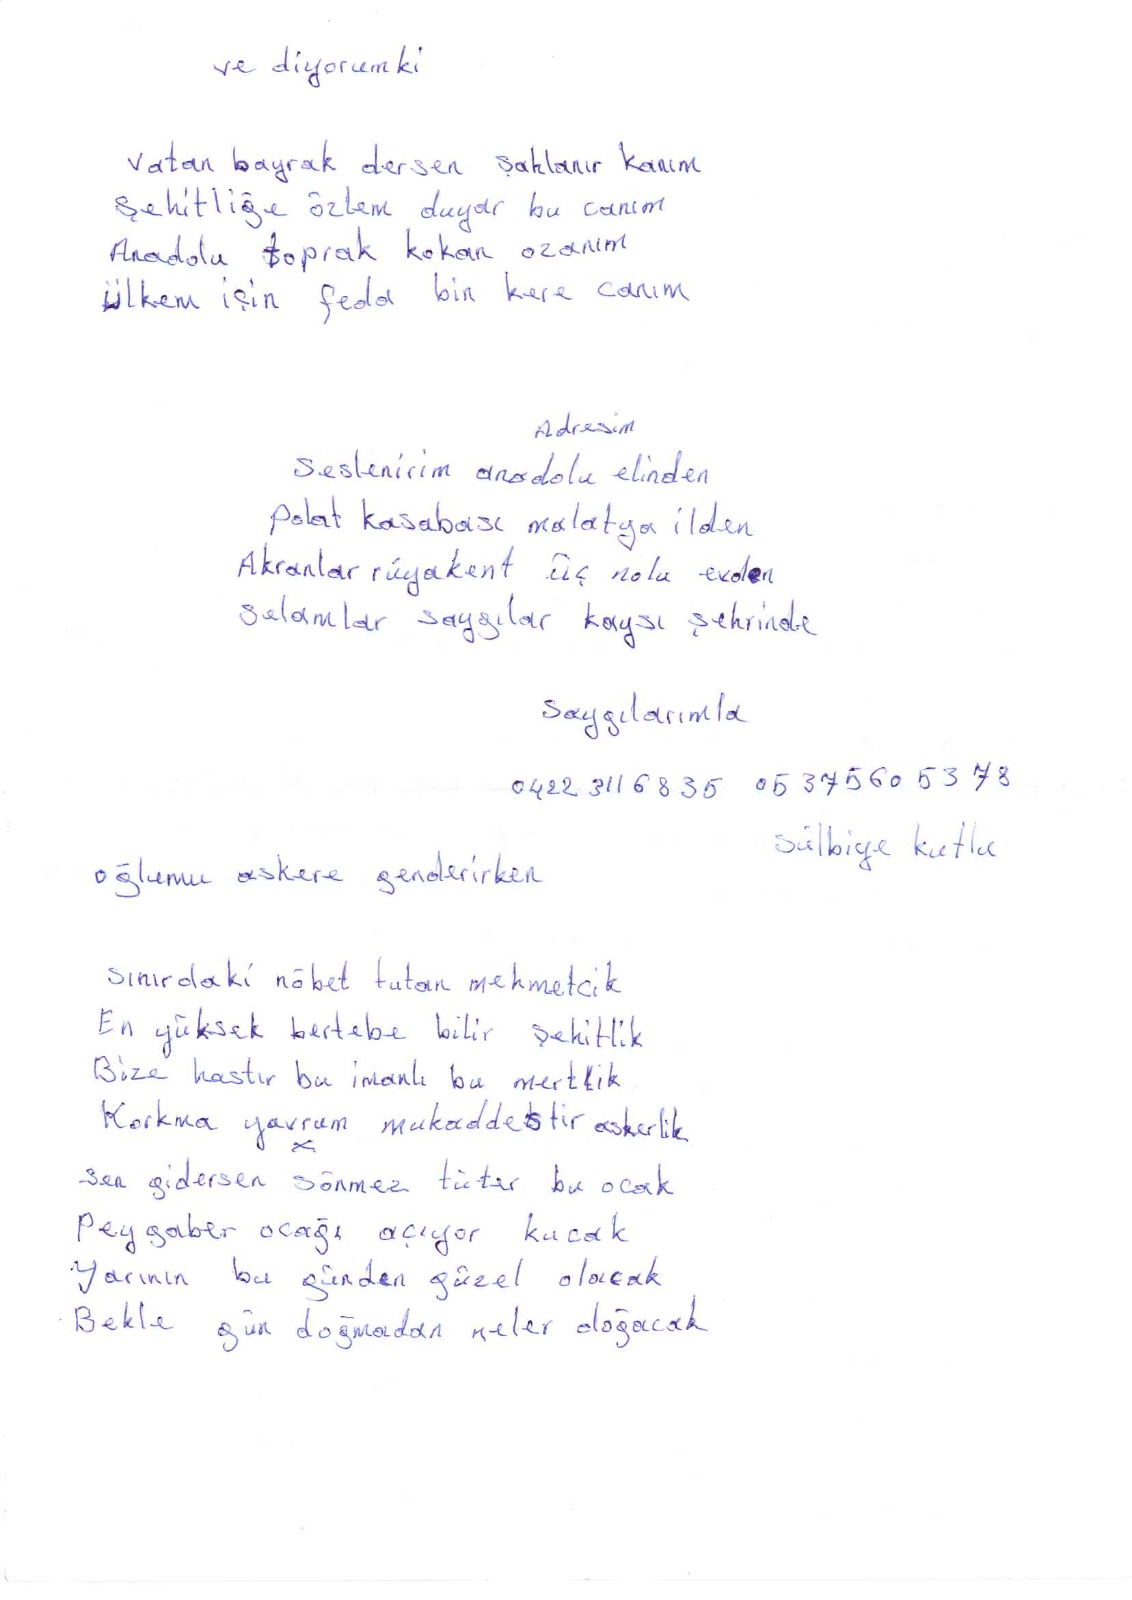 ve diyorumki
vatan bayrak dersen şahlanır kanım
şehitliğe özlem duyar bu canım
Anadolu toprak kokan ozanım
ülkem için feda bin kere canım
Adresim
Seslenirim anadolu elinden
polat kasabası malatya ilden
Akranlar rüyakent üç nolu evden
Selamlar saygılar kaysı şehrinde
Saygılarımla
0422 3116835 05375605378
Sülbiye kutlu
oğlumu askere genderirken
sınırdaki nöbet tutan mehmetcik
En yüksek bertebe bilir şehitlik
Bize hastır bu imanlı bu mertlik
Korkma yavrum mukaddestir askerlik
x
sen gidersen sönmez tüter bu ocak
Peygaber ocağı açıyor kucak
Yarının bu günden güzel olacak
Bekle gün doğmadan neler doğacak